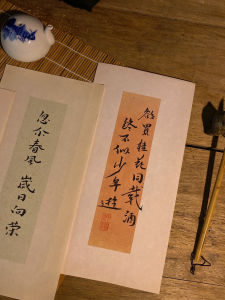 欲買桂花同載酒
終不似少年遊
忽尒春風 歲日向榮